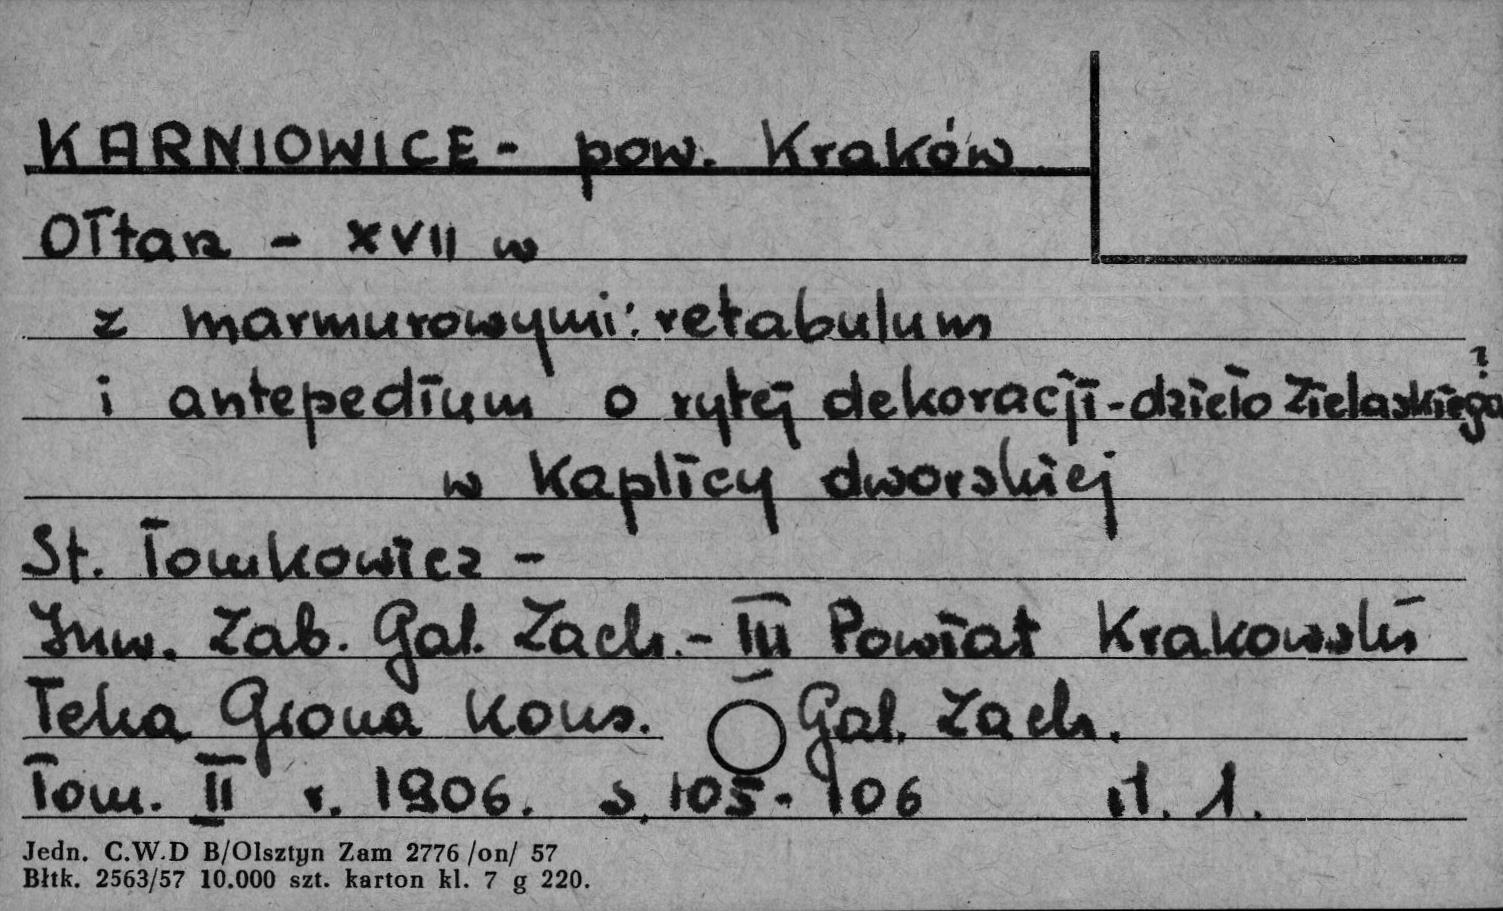 KARNIOWICE - pow. Kraków
Ołtarz - XVII w
z marmurowymi: retabulum
i antepedium o rytej dekoracji - dzieło Zielaskiego ?
w kaplicy dworskiej
St. Tomkowicz -
Inw. Zab. Gal. Zach. - III Powiat Krakowski
Teka Grona Kons. Gal. Zach.
Tom. II r. 1906. s. 105 - 106 il. 1.
Jedn. C.W.D B/Olsztyn Zam 2776 /on/ 57
Błtk. 2563/57 10.000 szt. karton kl. 7 g 220.